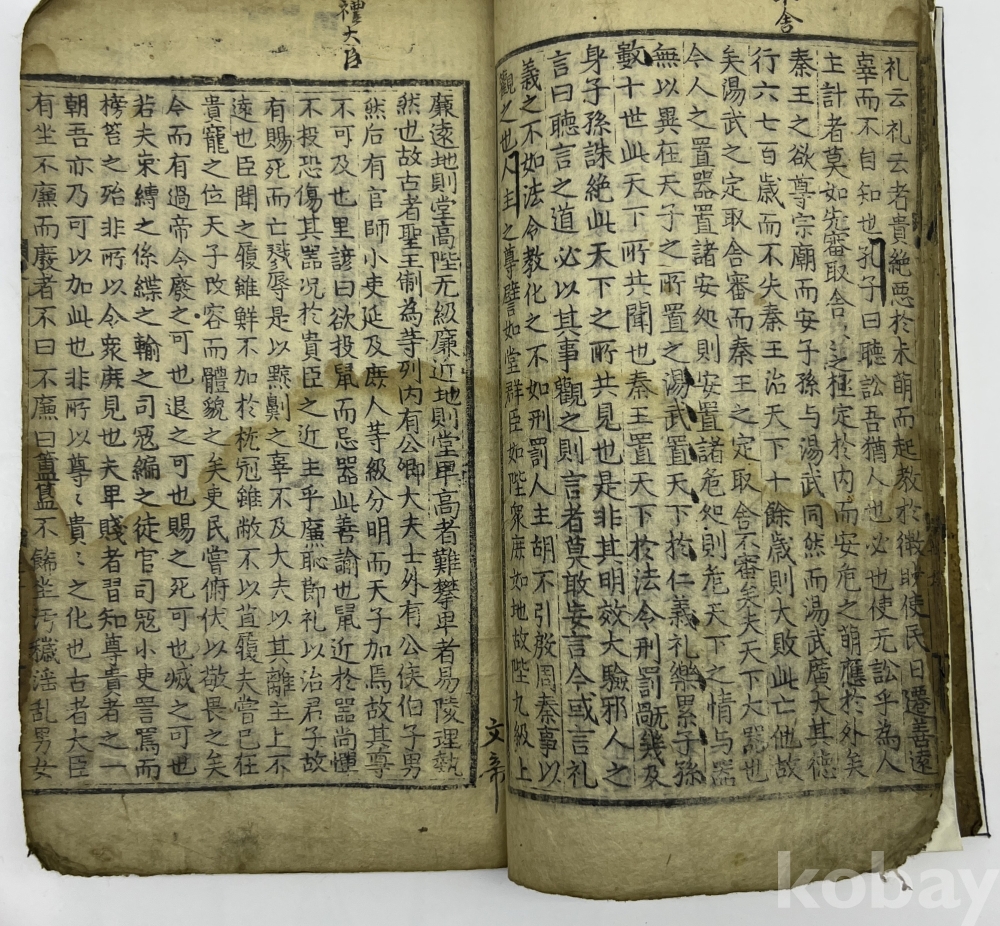 舍
礼云礼云者貴絶悪於未萌而起教於微眇使民日遷善遠
辜而不自知也孔子曰聴訟吾猶人也必也使无訟乎為人
主計者莫如先審取舍〻之極定於内而安危之萌應於外矣
秦王之欲尊宗廟而安子孫与湯武同然而湯武廣大其德
行六七百歳而不失秦王治天下十餘歳則大敗此亡他故
矣湯武之定取舍審而秦王之定取舍不審矣夫天下大器也
今人之置器置諸安処則安置諸危処則危天下之情与器
無以異在天子之所置之湯武置天下於仁義礼樂累子孫
數十世此天下所共聞也秦王置天下於法令刑罰旤幾及
身子孫誅絶此天下之所共見也是非其明效大驗邪人之
言曰聽言之道必以其事觀之則言者莫敢妄言今或言礼
義之不如法令教化之不如刑罰人主胡不引殷周秦事以
觀之也人主之尊譬如堂群臣如陛衆庶如地故陛九級上
文帝
禮大臣
廉遠地則堂高陛无級廉近地則堂卑高者難攀卑者易陵理埶
然也故古者聖王制為等列内有公卿大夫士外有公侯伯子男
然后有官師小吏延及庶人等級分明而天子加焉故其尊
不可及也里諺曰欲投鼠而忌器此善諭也鼠近於器尚憚
不投恐傷其器况於貴臣之近主乎廉恥節礼以治君子故
有賜死而亡戮辱是以黥劓之辜不及大夫以其離主上不
遠也臣聞之履雖鮮不加於枕冠雖敝不以苴履夫嘗已在
貴寵之位天子改容而體貌之矣吏民嘗俯伏以敬畏之矣
今而有過帝令廢之可也退之可也賜之死可也滅之可也
若夫束縛之係緤之輸之司寇編之徒官司寇小吏詈罵而
榜笞之殆非所以令衆庶見也夫卑賤者習知尊貴者之一
朝吾亦乃可以加此也非所以尊〻貴〻之化也古者大臣
有坐不廉而廢者不曰不廉曰簠簋不飾坐汚穢淫乱男女
kobay